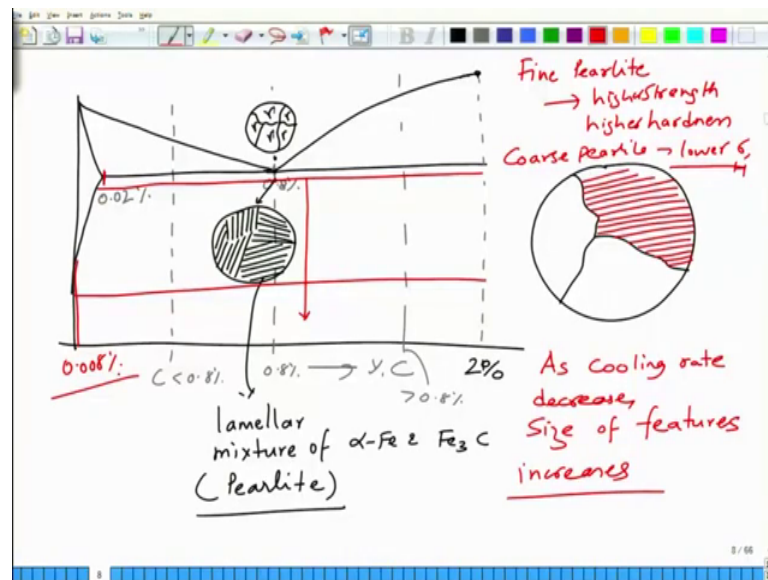 File Edit View Insert Actions Tools Help
B I
Fine Pearlite
→ higher strength
higher hardness
Coarse pearlite → lower σ,
H
r r r
r r r
0.02%.
0.8%.
0.008%.
C < 0.8%.
0.8%. → %, C
> 0.8%.
2%
lamellar
mixture of α-Fe & Fe3C
(Pearlite)
As cooling rate
decrease,
Size of features
increases
8/66
8